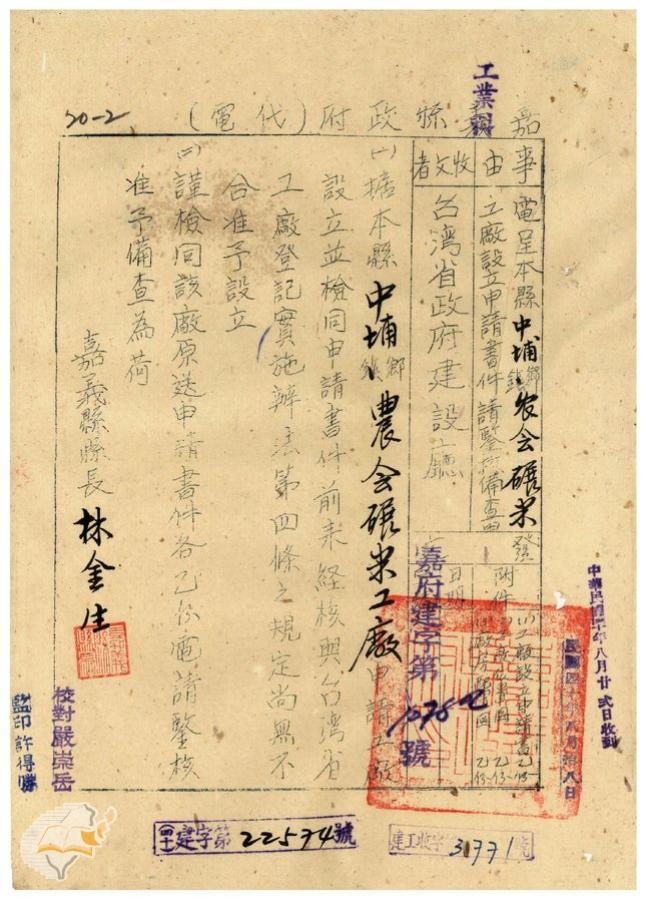 工業課
嘉義縣政府(代電)
20-2
事由
電呈本縣中埔鄉鎮农会碾米
工廠設立申請書件請鑒核備查由
收文者
台湾省政府建設廳
發
日期
附件
(1)工廠設立申請書乙份
乙份
乙份
嘉府建字第
號
民國四十年八月拾八日
中華民國四十年八月廿弍日收到
(一)據本縣中埔鄉鎮農会碾米工廠申請工廠
設立並檢同申請書件前来経核與台湾省
工廠登記實施辦法第四條之規定尚無不
合准予設立
(二)謹檢同該廠原送申請書件各乙份電請鑒核
准予備查為荷
嘉義縣縣長林金生
校對嚴崇岳
監印許得勝
四十建字第22574號
建工收字第31771號